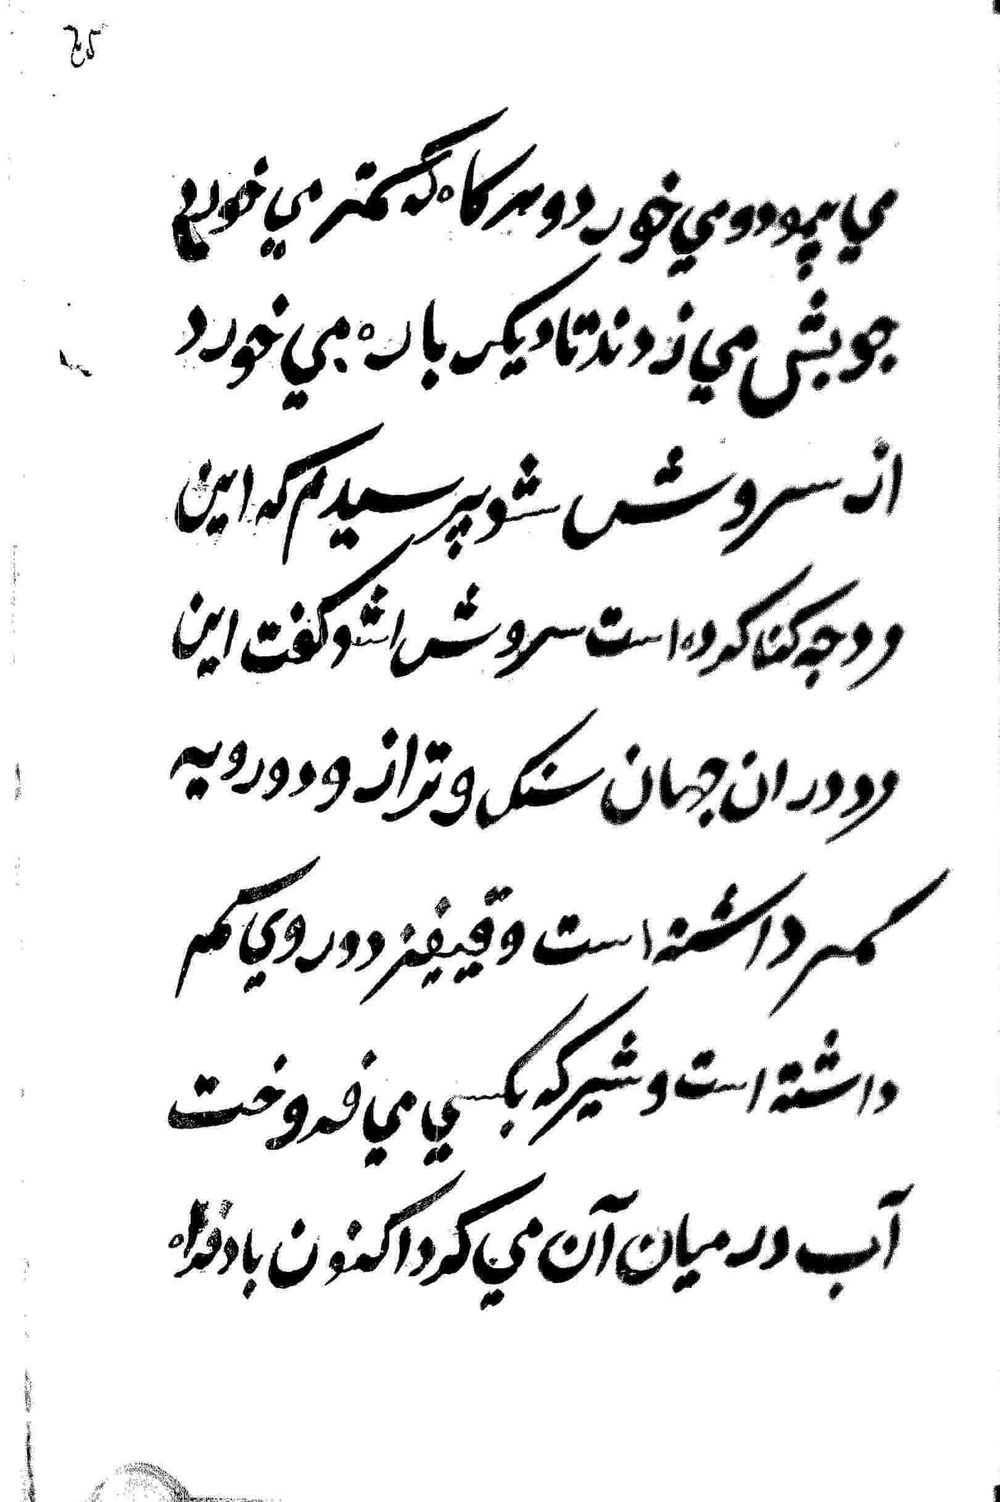 مي پيمود و مي خورد و هر كاه كه كمتر مي خورد
چوبش مي زدند تا ديكر باره مي خورد
از سروش اشو پرسيدم كه اين
رو چه كنا كرده است سروش اشو كفت اين
رو در ان جهان سنك و ترازو دورويه
كمر داشته است و قيفيز دوروي كم
داشته است و شير كه بكسي مي فروخت
آب در ميان آن مي كرد اكنون بادفراه